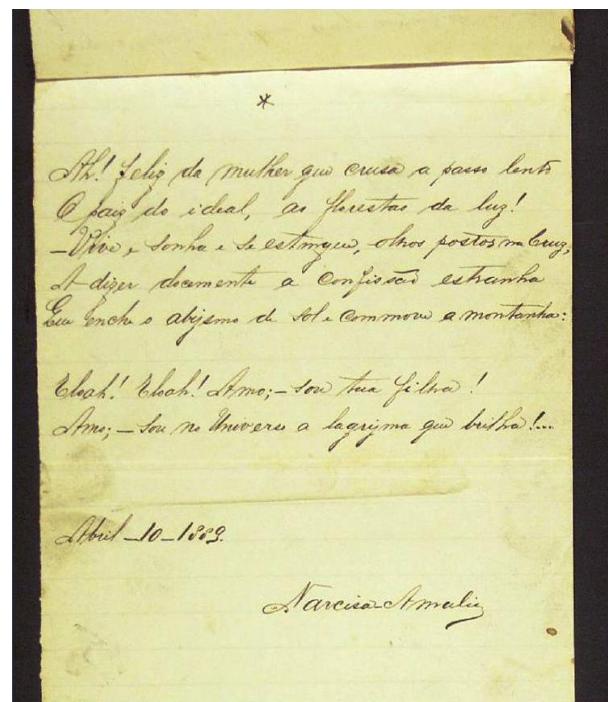 *
Ah! feliz da mulher que crusa a passo lento
O paiz do ideal, as florestas da luz!
—Vive, sonha e se extingue, olhos postos na Cruz,
A dizer docemente a confissão estranha
Que enche o abysmo de sol e commove a montanha:
Eloah! Eloah! Amo; — sou tua filha!
Amo; — sou no Universo a lagryma que brilha!...
Abril — 10 — 1889.
Narcisa Amalia